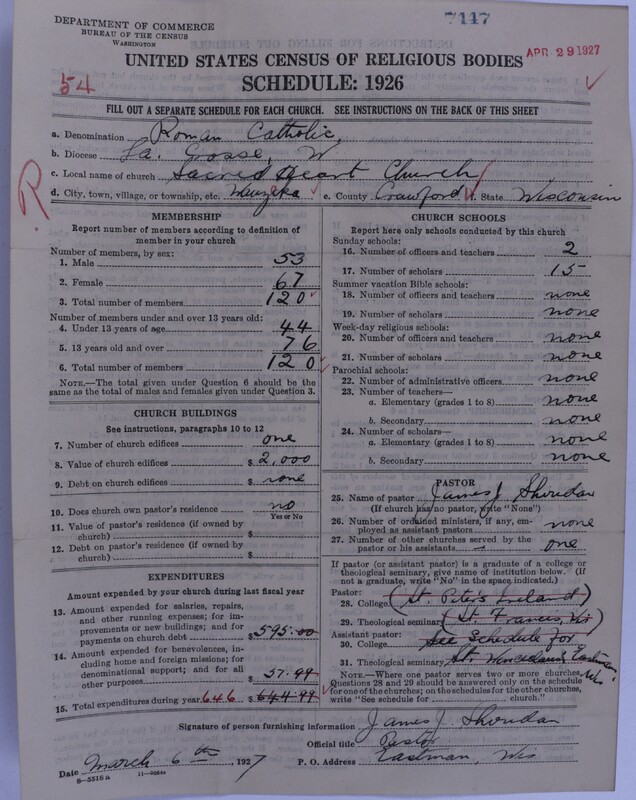 7447
DEPARTMENT OF COMMERCE
BUREAU OF THE CENSUS
WASHINGTON
APR 29 1927
UNITED STATES CENSUS OF RELIGIOUS BODIES
54
SCHEDULE: 1926
FILL OUT A SEPARATE SCHEDULE FOR EACH CHURCH. SEE INSTRUCTIONS ON THE BACK OF THIS SHEET
a. Denomination Roman Catholic
b. Diocese La. Crosse, W
c. Local name of church Sacred Heart Church
d. City, town, village, or township, etc. Wauzeka e. County Crawford f. State Wisconsin
R
MEMBERSHIP
Report number of members according to definition of member in your church
Number of members, by sex:
1. Male 53
2. Female 67
3. Total number of members 120
Number of members under and over 13 years old:
4. Under 13 years of age 44
5. 13 years old and over 76
6. Total number of members 120
NOTE.—The total given under Question 6 should be
same as the total of males and females given under Question 3.
CHURCH BUILDINGS
See instructions, paragraphs 10 to 12
7. Number of church edifices one
8. Value of church edifices $ 2,000
9. Debt on church edifices $ none
10. Does church own pastor's residence no
Yes or No
11. Value of pastor's residence (if owned by
church) $
12. Debt on pastor's residence (if owned by
church) $
EXPENDITURES
Amount expended by your church during last fiscal year
13. Amount expended for salaries, repairs,
and other running expenses; for im-
provements or new buildings; and for
payments on church debt $ 595.00
14. Amount expended for benevolences, in-
cluding home and foreign missions; for
denominational support; and for all
other purposes $ 57.99
15. Total expenditures during year 646 $ 644.99
CHURCH SCHOOLS
Report here only schools conducted by this church
Sunday schools:
16. Number of officers and teachers 2
17. Number of scholars 15
Summer vacation Bible schools:
18. Number of officers and teachers none
19. Number of scholars none
Week-day religious schools:
20. Number of officers and teachers none
21. Number of scholars none
Parochial schools:
22. Number of administrative officers none
23. Number of teachers—
a. Elementary (grades 1 to 8) none
b. Secondary none
24. Number of scholars—
a. Elementary (grades 1 to 8) none
b. Secondary none
PASTOR
25. Name of pastor James J. Sheridan
(If church has no pastor, write "None")
26. Number of ordained ministers, if any, em-
ployed as assistant pastors none
27. Number of other churches served by the
pastor or his assistants one
If pastor (or assistant pastor) is a graduate of a college or
theological seminary, give name of institution below. (If
not a graduate, write "No" in the space indicated.)
Pastor:
28. College (St. Peters Ireland)
29. Theological seminary (St. Francis, Wis)
Assistant pastor:
30. College See Schedule for
31. Theological seminary St. Wenceslaus, Eastman, Wis.
NOTE.—Where one pastor serves two or more churches,
Questions 28 and 29 should be answered only on the schedule
for one of the churches; on the schedules for the other churches,
write "See schedule for church."
Signature of person furnishing information James J. Sheridan
Official title Pastor
Date March 6th, 1927 P. O. Address Eastman, Wis
8-5518 a